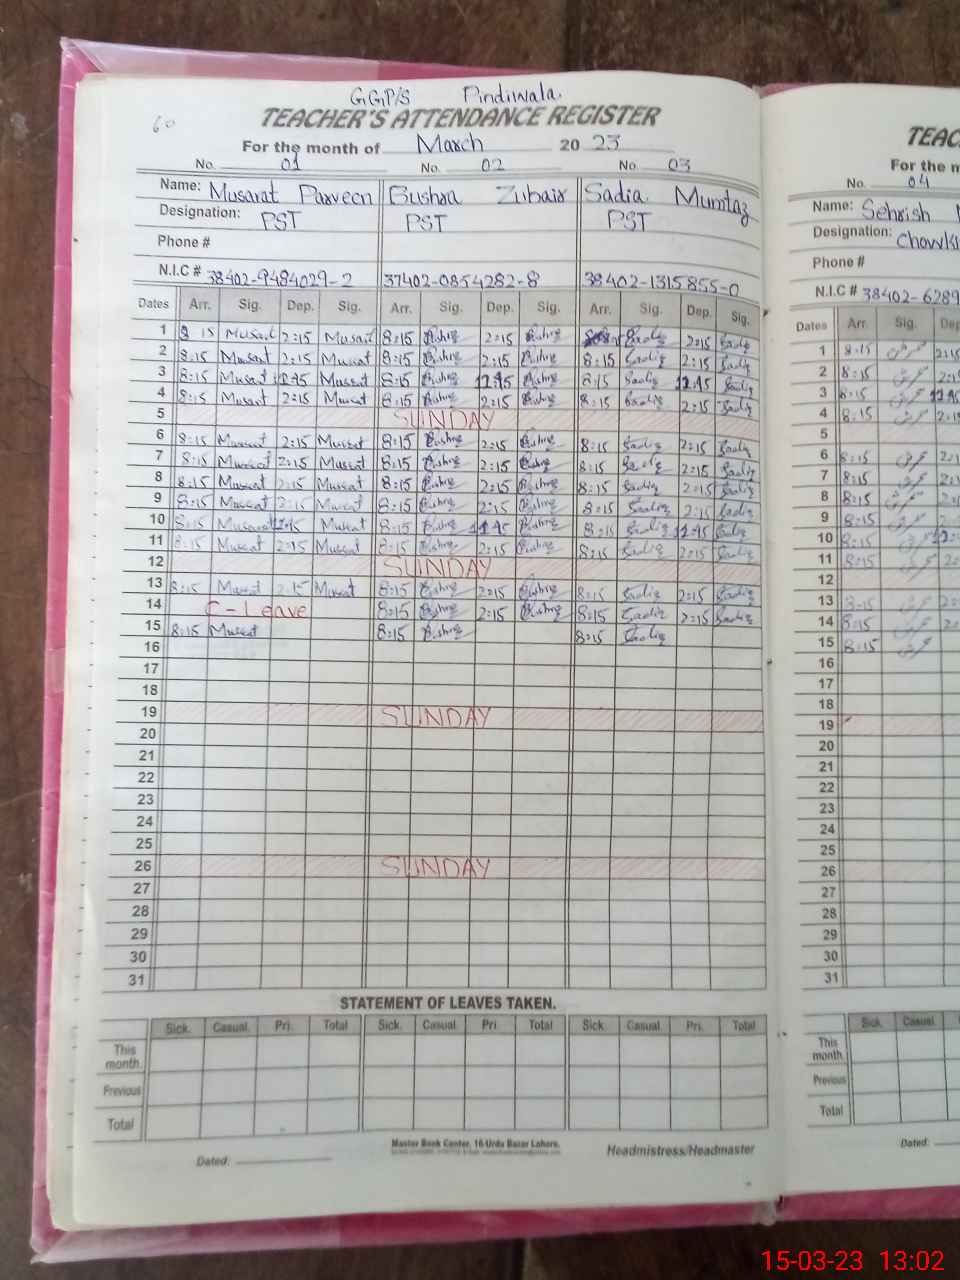 60
GGP/S Pindiwala.
TEACHER'S ATTENDANCE REGISTER
For the month of March 20 23
No. 01 No. 02 No. 03
Name: Musarat Parveen Bushra Zubair Sadia Mumtaz
Designation: PST PST PST
Phone #
N.I.C # 38402-9484029-2 37402-0854282-8 38402-1315855-0
Dates Arr. Sig. Dep. Sig. Arr. Sig. Dep. Sig. Arr. Sig. Dep. Sig.
1 8 15 Musarat 2:15 Musarat 8:15 Bushra 2:15 Bushra Sadia 2:15 Sadia
2 8:15 Musarat 2:15 Musarat 8:15 Bushra 2:15 Bushra 8:15 Sadia 2:15 Sadia
3 8:15 Musarat Musarat 8:15 Bushra 12:45 Bushra 8:15 Sadia 12:45 Sadia
4 8:15 Musarat 2:15 Musarat 8:15 Bushra 2:15 Bushra 8:15 Sadia 2:15 Sadia
5 SUNDAY
6 8:15 Musarat 2:15 Musarat 8:15 Bushra 2:15 Bushra 8:15 Sadia 2:15 Sadia
7 8:15 Musarat 2:15 Musarat 8:15 Bushra 2:15 Bushra 8:15 Sadia 2:15 Sadia
8 8:15 Musarat 2:15 Musarat 8:15 Bushra 2:15 Bushra 8:15 Sadia 2:15 Sadia
9 8:15 Musarat 2:15 Musarat 8:15 Bushra 2:15 Bushra 8:15 Sadia 2:15 Sadia
10 8:15 Musarat Musarat 8:15 Bushra 12:45 Bushra 8:15 Sadia 12:45 Sadia
11 8:15 Musarat 2:15 Musarat 8:15 Bushra 2:15 Bushra 8:15 Sadia 2:15 Sadia
12 SUNDAY
13 8:15 Musarat 2:15 Musarat 8:15 Bushra 2:15 Bushra 8:15 Sadia 2:15 Sadia
14 C-Leave 8:15 Bushra 2:15 Bushra 8:15 Sadia 2:15 Sadia
15 8:15 Musarat 8:15 Bushra 8:15 Sadia
16
17
18
19 SUNDAY
20
21
22
23
24
25
26 SUNDAY
27
28
29
30
31
STATEMENT OF LEAVES TAKEN.
Sick. Casual. Pri. Total Sick. Casual. Pri. Total Sick. Casual. Pri. Total
This month.
Previous
Total
Master Book Center, 16-Urdu Bazar Lahore.
Dated: Headmistress/Headmaster
TEAC
For the m
No. 04
Name: Sehrish
Designation: Chowki
Phone #
N.I.C # 38402-6289
Dates Arr. Sig. Dep
1 8:15 2:15
2 8:15
3 8:15
4 8:15
5
6 8:15
7 8:15
8 8:15
9 8:15
10 8:15
11 8:15
12
13 8:15
14 8:15
15 8:15
16
17
18
19
20
21
22
23
24
25
26
27
28
29
30
31
Sick Casual
This month.
Previous
Total
Dated:
15-03-23 13:02